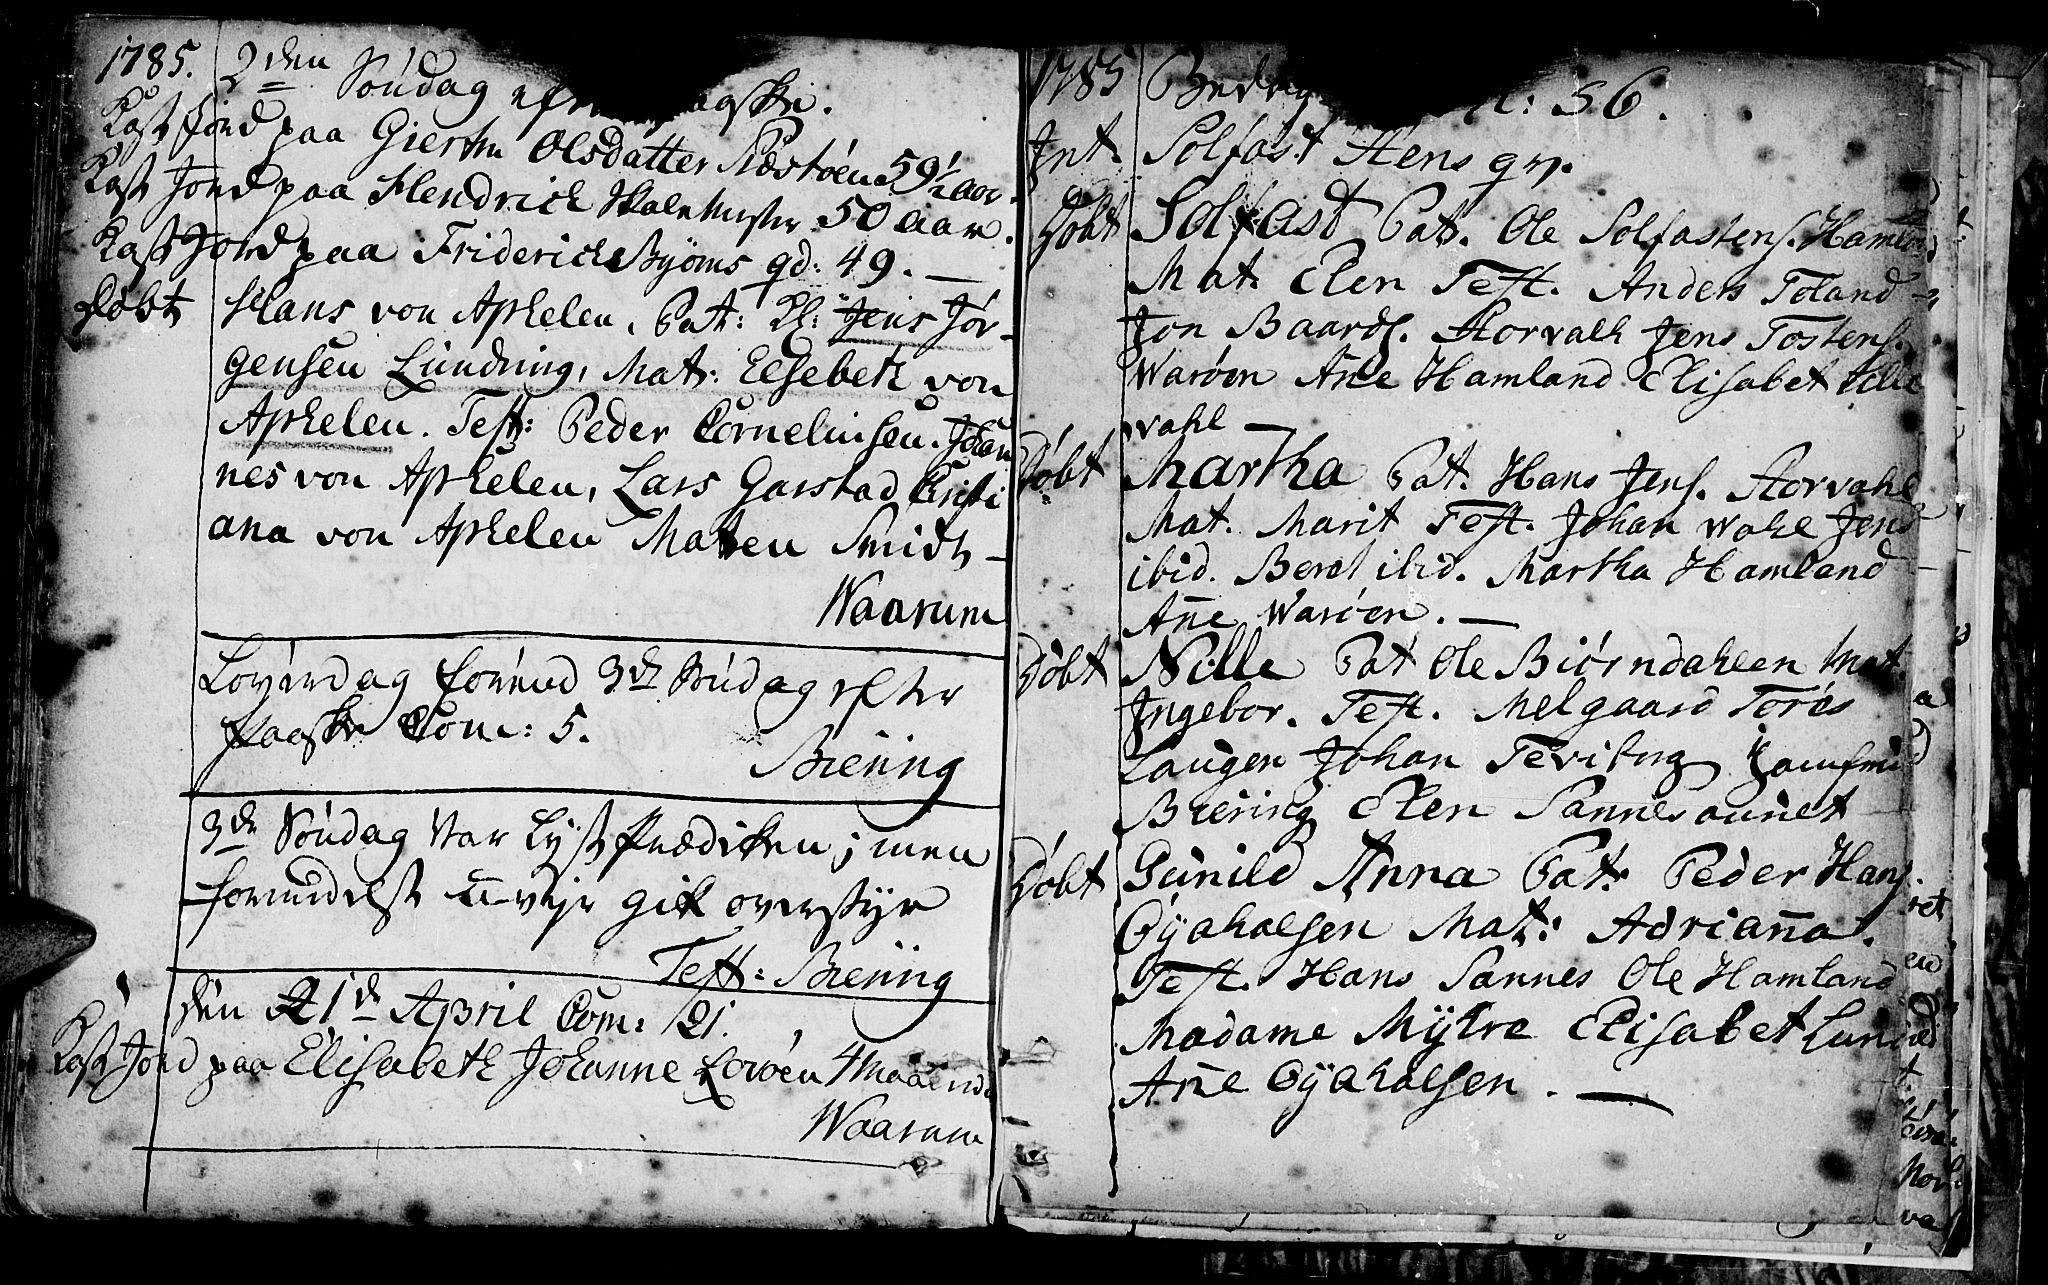 1785. 2den Søndag efte aaske.
Kast Jord paa Giertru Olsdatter Næstøen 59 1/2 aar.
Kast Jord paa Hendrich Skalmester 50 aar.
Kast Jord paa Friderich Byörns gd: 49. —
Döbt Hans von Aphelen. Pat: Jens Jør-
gensen Lündning, Mat: Elsebeth von
Aphelen. Test: Peder Cornelinsen. Johan
nes von Aphelen, Lars Garstad Cristi
ana von Aphelen Maren Smidt —
Waarum
Løverdag forend 3de Søndag efter
Paaske Com: 5.
Biering
3de Søndag var lyst Prædiken; men
formedelst u-vejr gik overstyr
Test: Biering
Den 21de April Com: 21.
Kast Jord paa Elisabeth Johanne Lovøen 4 maaend
Waarum
1785 56.
Int. Solfast Stens gr.
Döbt Solfast Pat. Ole Solfastens. Hamlan
Mat. Elen Test. Anders Foland
Jon Baards. Storvalh Jens Tostens.
Waröen Añe Hamland Elisabet
vahl —
Döbt Martha Pat. Hans Jens. Storvahl
Mat. Marit Test. Johan Wahl Jens
ibid. Beret ibid. Martha Hamland
Añe Waröen. —
Döbt Nille Pat Ole Biörndahlen Mat.
Ingebor. Test. Melgaard Torös
Laugen Johan Teviberg Jomfrue
Biering Elen Sannesaunet
Döbt Gunild Anna Pat: Peder Hans.
Oÿahalsen Mat: Adriaña.
Test. Hans Sannes Ole Hamland
Madame Mÿhre Elisabet Lund
Añe Oÿahalsen. —